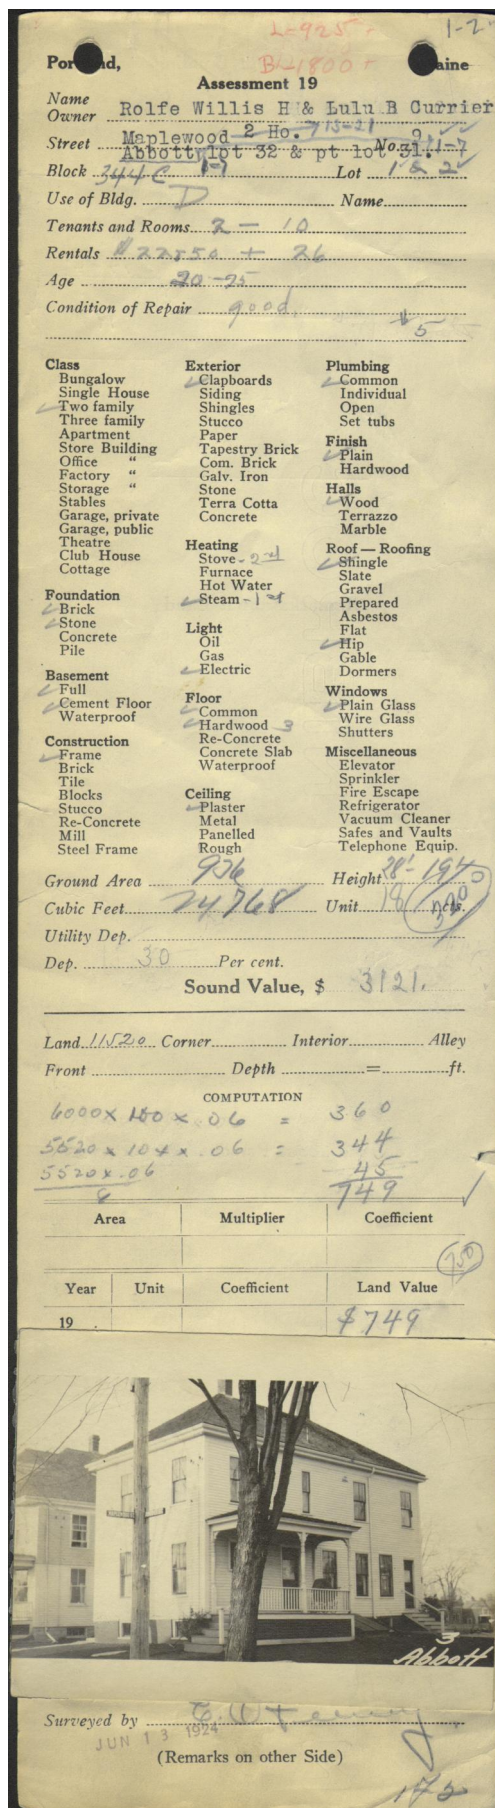 L-925
1-2
B-1800
Portland, Maine
Assessment 19
Name
Owner Rolfe Willis H & Lulu B Currier
Street Maplewood 2 Ho. 715-21 No. 9, 11-7
Abbott lot 32 & pt lot 31.
Block 344C 1-7 Lot 1 & 2
Use of Bldg. D Name
Tenants and Rooms 2 - 10
Rentals $22850 + 26
Age 20-25
Condition of Repair good
$5
Class
Bungalow
Single House
Two family
Three family
Apartment
Store Building
Office "
Factory "
Storage "
Stables
Garage, private
Garage, public
Theatre
Club House
Cottage
Foundation
Brick
Stone
Concrete
Pile
Basement
Full
Cement Floor
Waterproof
Construction
Frame
Brick
Tile
Blocks
Stucco
Re-Concrete
Mill
Steel Frame
Exterior
Clapboards
Siding
Shingles
Stucco
Paper
Tapestry Brick
Com. Brick
Galv. Iron
Stone
Terra Cotta
Concrete
Heating
Stove - 2nd
Furnace
Hot Water
Steam - 1st
Light
Oil
Gas
Electric
Floor
Common
Hardwood 3
Re-Concrete
Concrete Slab
Waterproof
Ceiling
Plaster
Metal
Panelled
Rough
Plumbing
Common
Individual
Open
Set tubs
Finish
Plain
Hardwood
Halls
Wood
Terrazzo
Marble
Roof — Roofing
Shingle
Slate
Gravel
Prepared
Asbestos
Flat
Hip
Gable
Dormers
Windows
Plain Glass
Wire Glass
Shutters
Miscellaneous
Elevator
Sprinkler
Fire Escape
Refrigerator
Vacuum Cleaner
Safes and Vaults
Telephone Equip.
Ground Area 926 Height 28'- 1940
Cubic Feet 24768 Unit 18 cts.
Utility Dep.
Dep. 30 Per cent.
Sound Value, $ 3121.
Land 11520 Corner Interior Alley
Front Depth = ft.
COMPUTATION
6000 x 100 x .06 = 360
5520 x 104 x .06 = 344
5520 x .06 45
749
Area Multiplier Coefficient
750
Year Unit Coefficient Land Value
19 $749
3
Abbott
Surveyed by
JUN 13 1924
(Remarks on other Side)